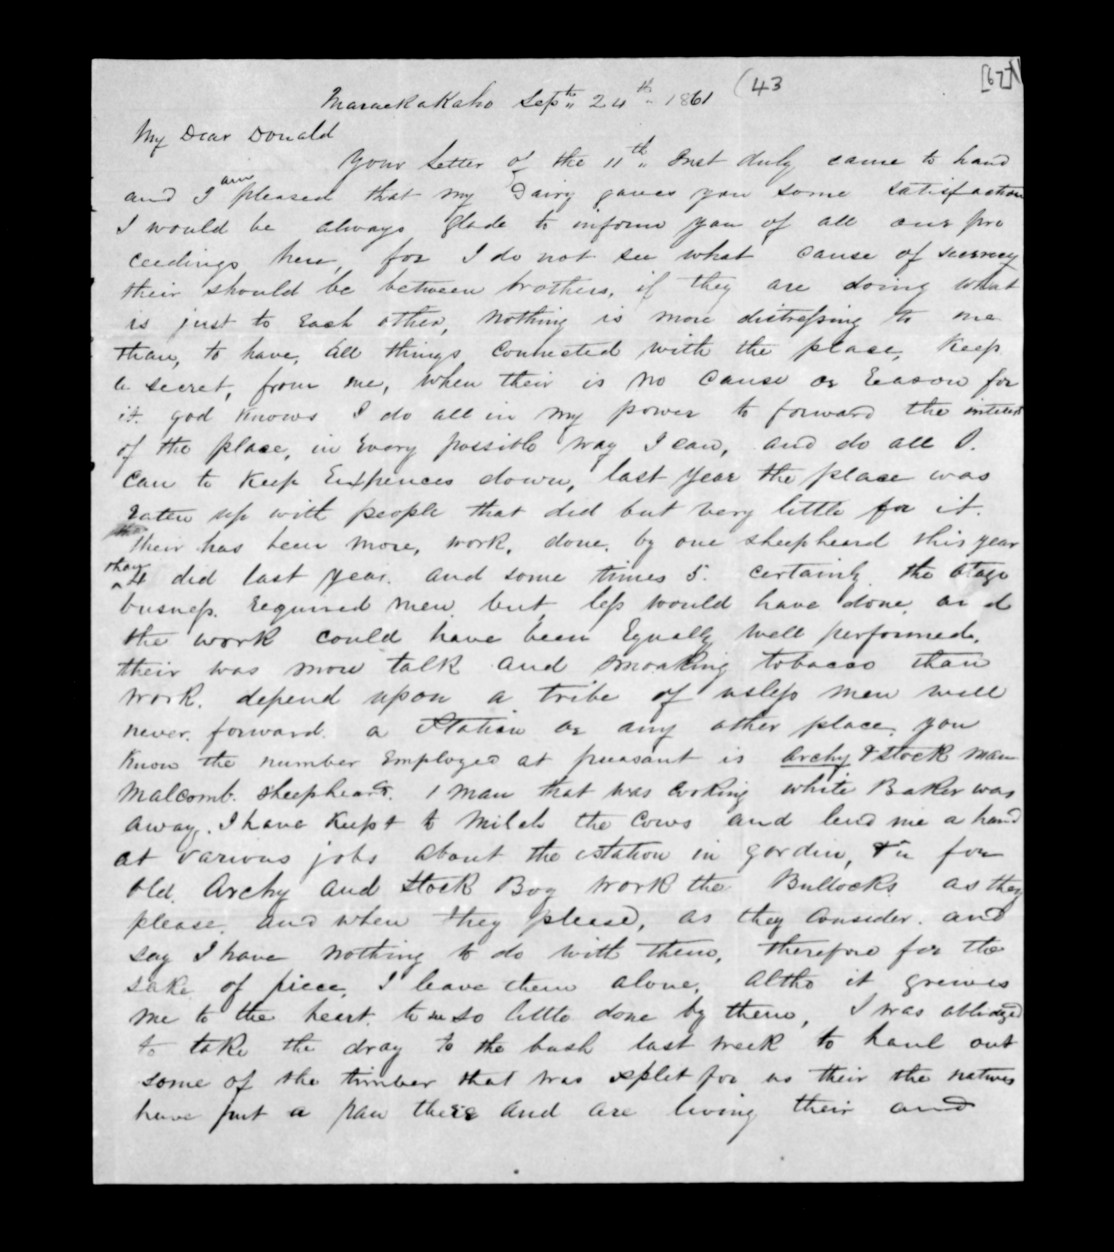 (43
[67]
Maraekakaho Septh 24th 1861
My Dear Donald
Your letter of the 11th Inst duly came to hand
and I am pleased that my Dairy gaves you some satisfaction
I would be always glade to inform you of all our pro
ceedings here, for I do not see what cause of secrecy
their should be between brothers, if they are doing what
is just to Each other, Nothing is more distressing to me
than, to have, all things, connected with the place, Keep
a secret, from me, when their is no cause or Eeason for
it. god knows I do all in my power to forward the interest
of the place, in Every possible way I can, and do all I.
can to Keep Enxpences down, last year the place was
Eaten up with people that did but very little for it.
their has been more, work, done, by one sheepheard this year
than 4 did last year. and some times 5. certainly the Otago
busness. required men but less would have done, and
the work could have been Equally well performed.
their was more talk and smoaking tobacco than
work. depend upon a tribe of usless men will
never. forward. a Station or any other place, you
know the number Employed at preasant is Archy & stock man
Malcomb. sheepheard. 1 man that was cooking white Baker was
away. I have kept to milch the cows and lend me a hand
at various jobs about the station in gorden, &c for
old. Archy and Stock Boy work the Bullocks as they
please. and when they please, as they consider. and
say I have nothing to do with them, therefore for the
sake of piece, I leave them alone, altho it greives
me to the heart. to see so little done by them, I was obliedged
to take the dray to the bush last week to haul out
some of the timber that was split for us their the natives
have put a paw there and are living their and